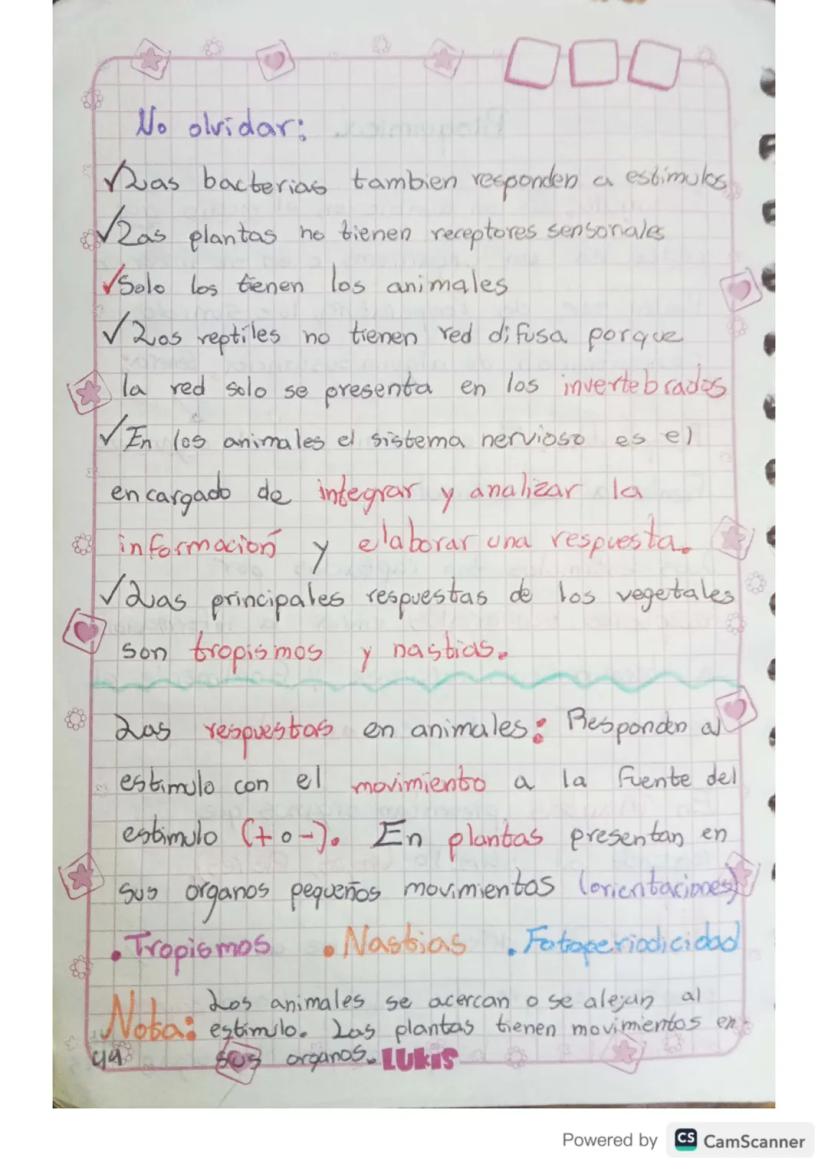 No olvidar:
✓Las bacterias tambien responden a estimulos
✓Las plantas no tienen receptores sensoriales
✓Solo los tienen los animales
✓Los reptiles no tienen red difusa porque
la red solo se presenta en los invertebrados
✓En los animales el sistema nervioso es el
encargado de integrar y analizar la
información y elaborar una respuesta.
✓Las principales respuestas de los vegetales
son tropismos y nastias.
Las respuestas en animales: Responden al
estimulo con el movimiento a la fuente del
estimulo (+ o -). En plantas presentan en
sus organos pequeños movimientos (orientaciones)
•Tropismos •Nastias •Fotoperiodicidad
Nota: Los animales se acercan o se alejan al
estimulo. Las plantas tienen movimientos en
sus organos. LUKIS
Powered by CS CamScanner